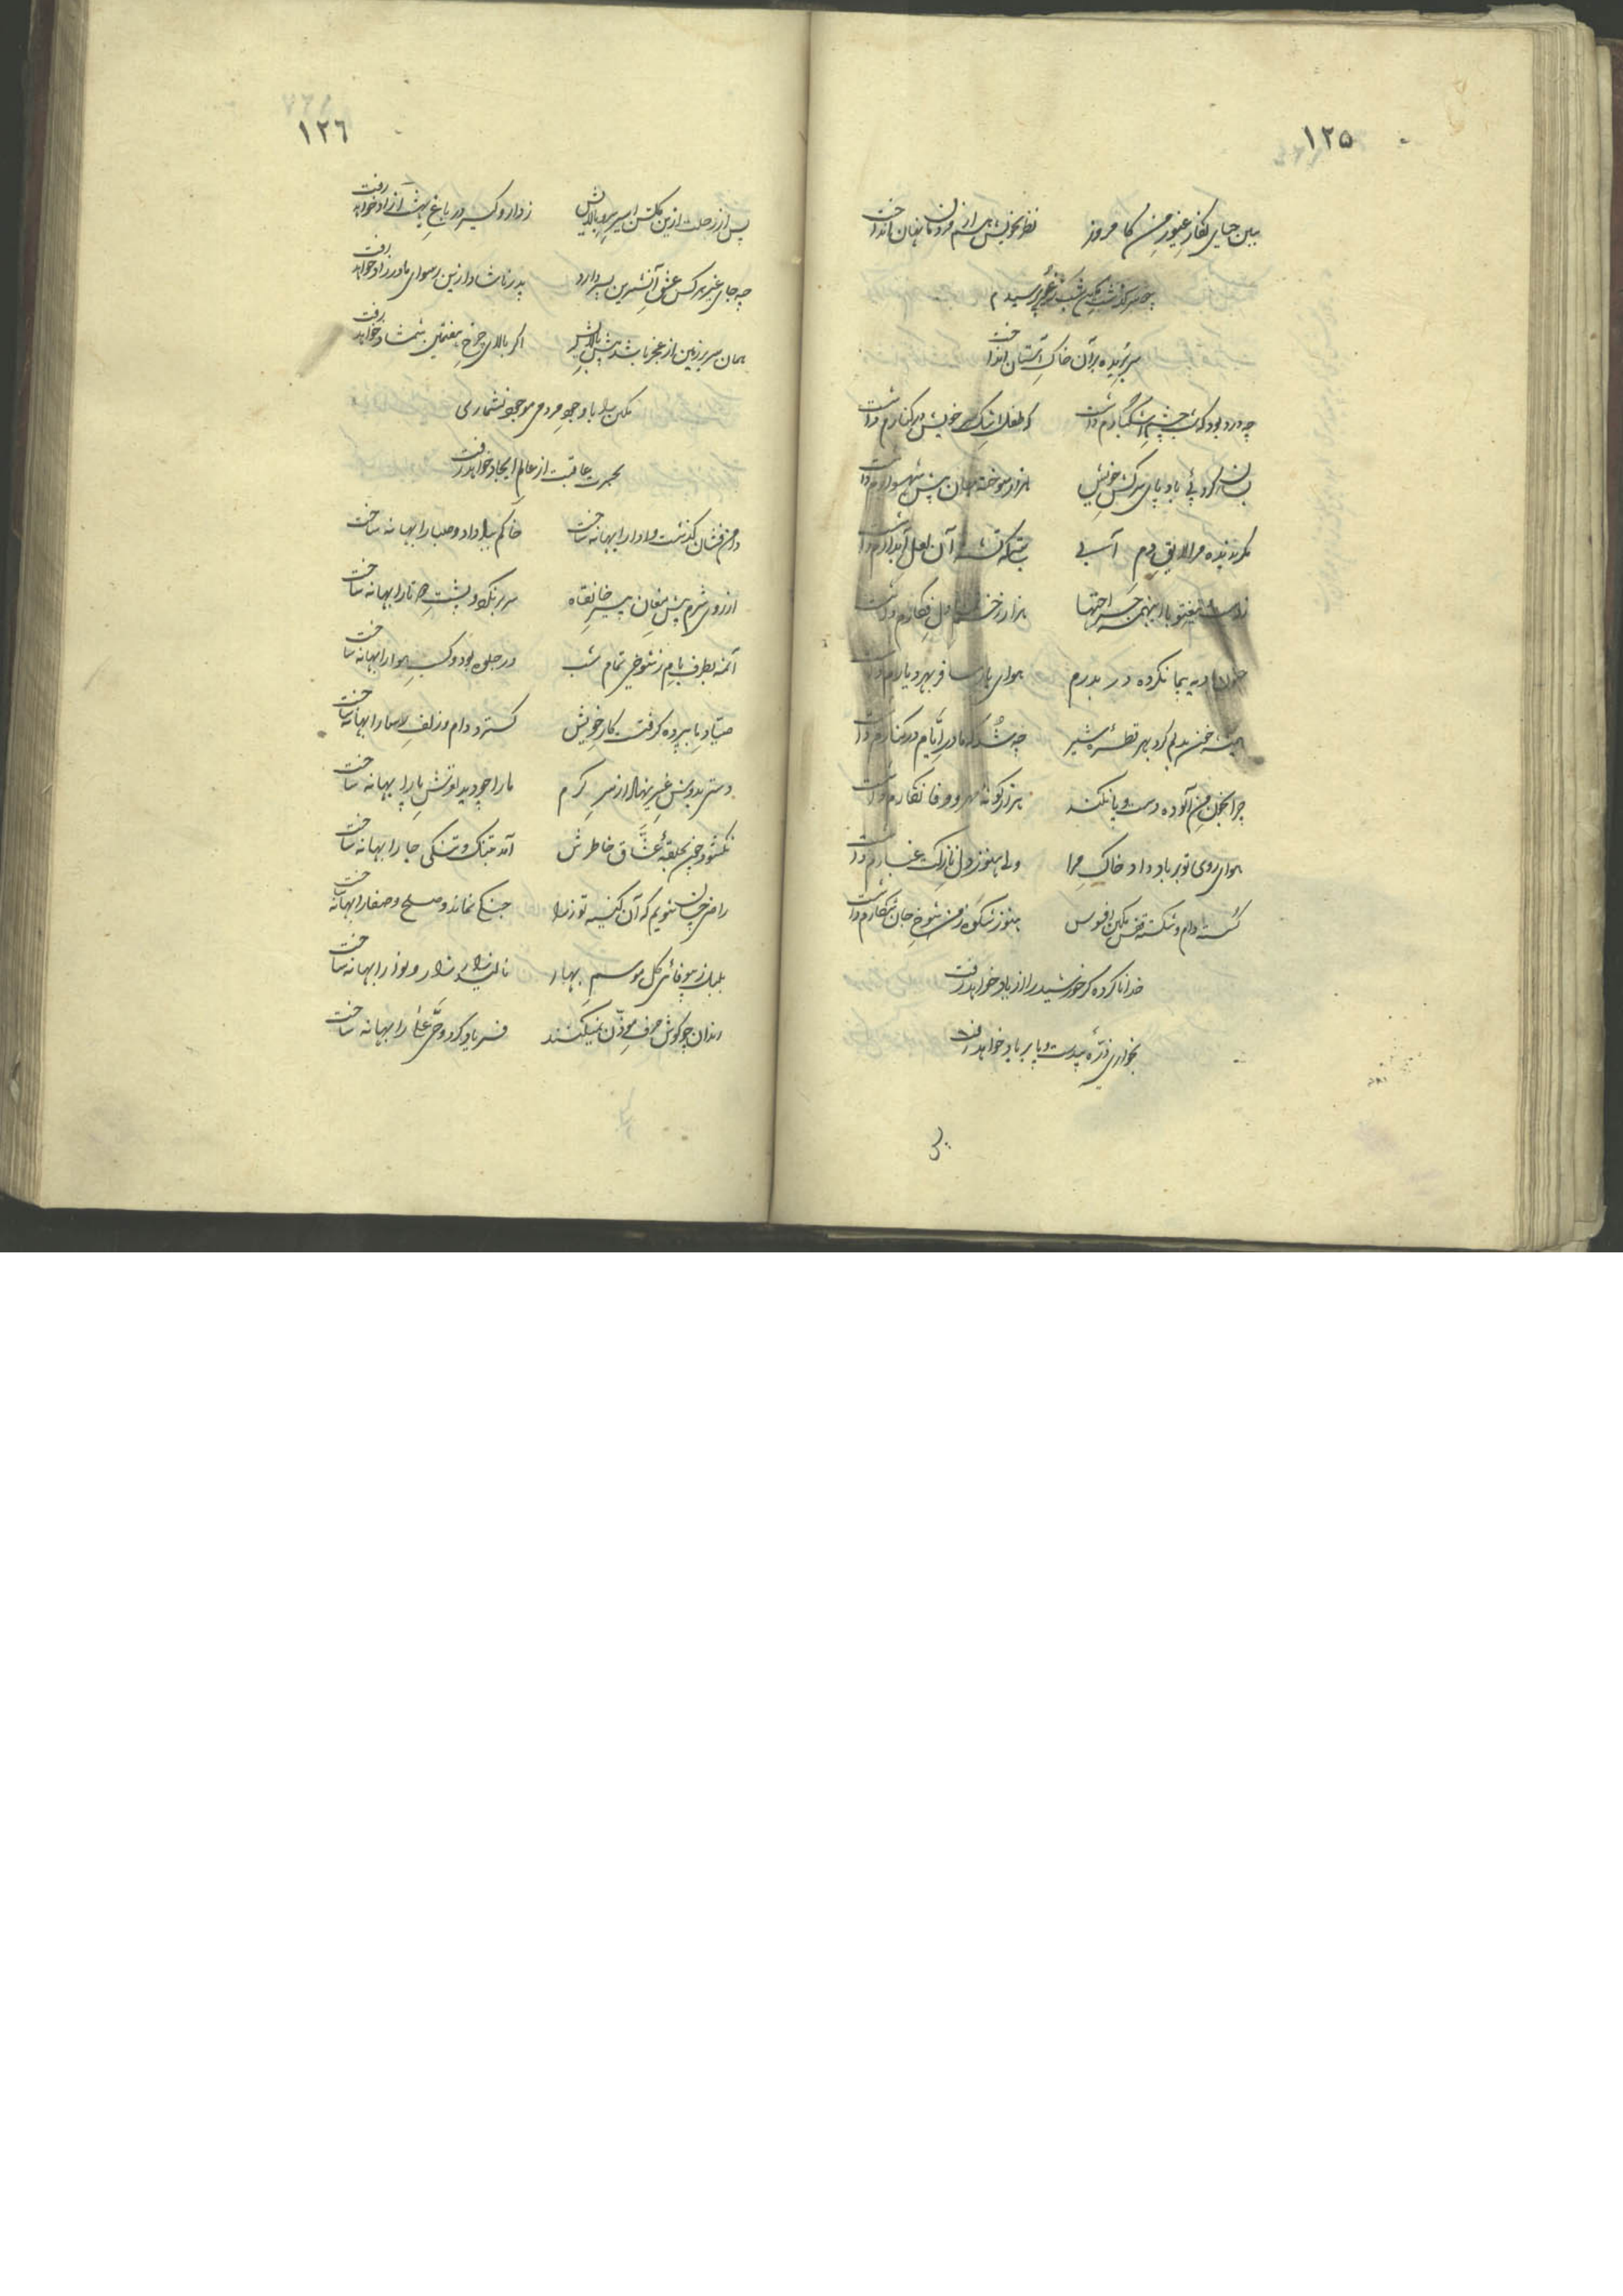 ١٢٥
ببین حیای نگار غیور من کامروز نظر بخویش هم از نهان انداخت
چه سرگذشت مکین شب ز پرسیدم
سر بریده بر آن خاک آستان انداخت
چه درد بود که شب چشم اشکبارم داشت که طفل اشک خویش در کنارم داشت
بسان گرد پی باد پای سرکش خویش هزار سوخته جان پیش شهسوارم داشت
مگر ندیده مرا لایق دم آبی آن لعل آبدارم داشت
هزار زخم دل فکارم داشت
نکرده در بدرم هوای یار مسافر بهر دیارم داشت
همیشه خون بدلم کرد بهر قطره شیر چه شد که مادر ایام در کنارم داشت
چرا بخون من آلوده دست و پا نکند هزار گونه مهر و وفا نگارم داشت
هوای روی تو بر باد داد خاک مرا ولی هنوز دل نازکت غبارم داشت
گسسته دام و شکسته قفس مکین افسوس هنوز شکوه ز من شوخ جان شکارم داشت
خدا ناکرده گر خورشید را از یاد خواهد رفت
بخواری ذره بیدست و پا بر باد خواهد رفت
١٢٦
پس از رحلت ازین گلشن اسیر سرو بالایش ز دار و گیر در باغ بهشت آزاد خواهد رفت
چه جای غیر هر کس عشق آن شیرین پسر دارد پدر ناشاد ازین رسوای مادرزاد خواهد رفت
همان سر بر زمین از عجز باشد پیش بالایش اگر بالای چرخ هفتمین شمشاد خواهد رفت
مکین را با وجود مردمی موجود نشماری
بحسرت عاقبت از عالم ایجاد خواهد رفت
دامن فشان گذشت و ادا را بهانه ساخت خاکم بباد داد و صبا را بهانه ساخت
از روی شرم پیش مغان پیر خانقاه سر بر نکرد و پشت دو تا را بهانه ساخت
آمد بطرف بام ز شوخی تمام شب در جلوه بود و کسب هوا را بهانه ساخت
صیاد ما بپرده گرفت کار خویش گسترد دام و زلف رسا را بهانه ساخت
دستی بدوش غیر نهاد از سر کرم ما را چو دید لغزش پا را بهانه ساخت
نگشود چین بحلقه عشاق خاطرش آمد بتنگ و تنگی جا را بهانه ساخت
راضی چسان شویم که آن کینه توز ما جنگی نماند و صلح و صفا را بهانه ساخت
بلبل ز بیوفائی گل موسم بهار نالید زار زار و نوا را بهانه ساخت
رندان چو گوش حرف موذن نمیکنند فریاد کرد و حی علی را بهانه ساخت